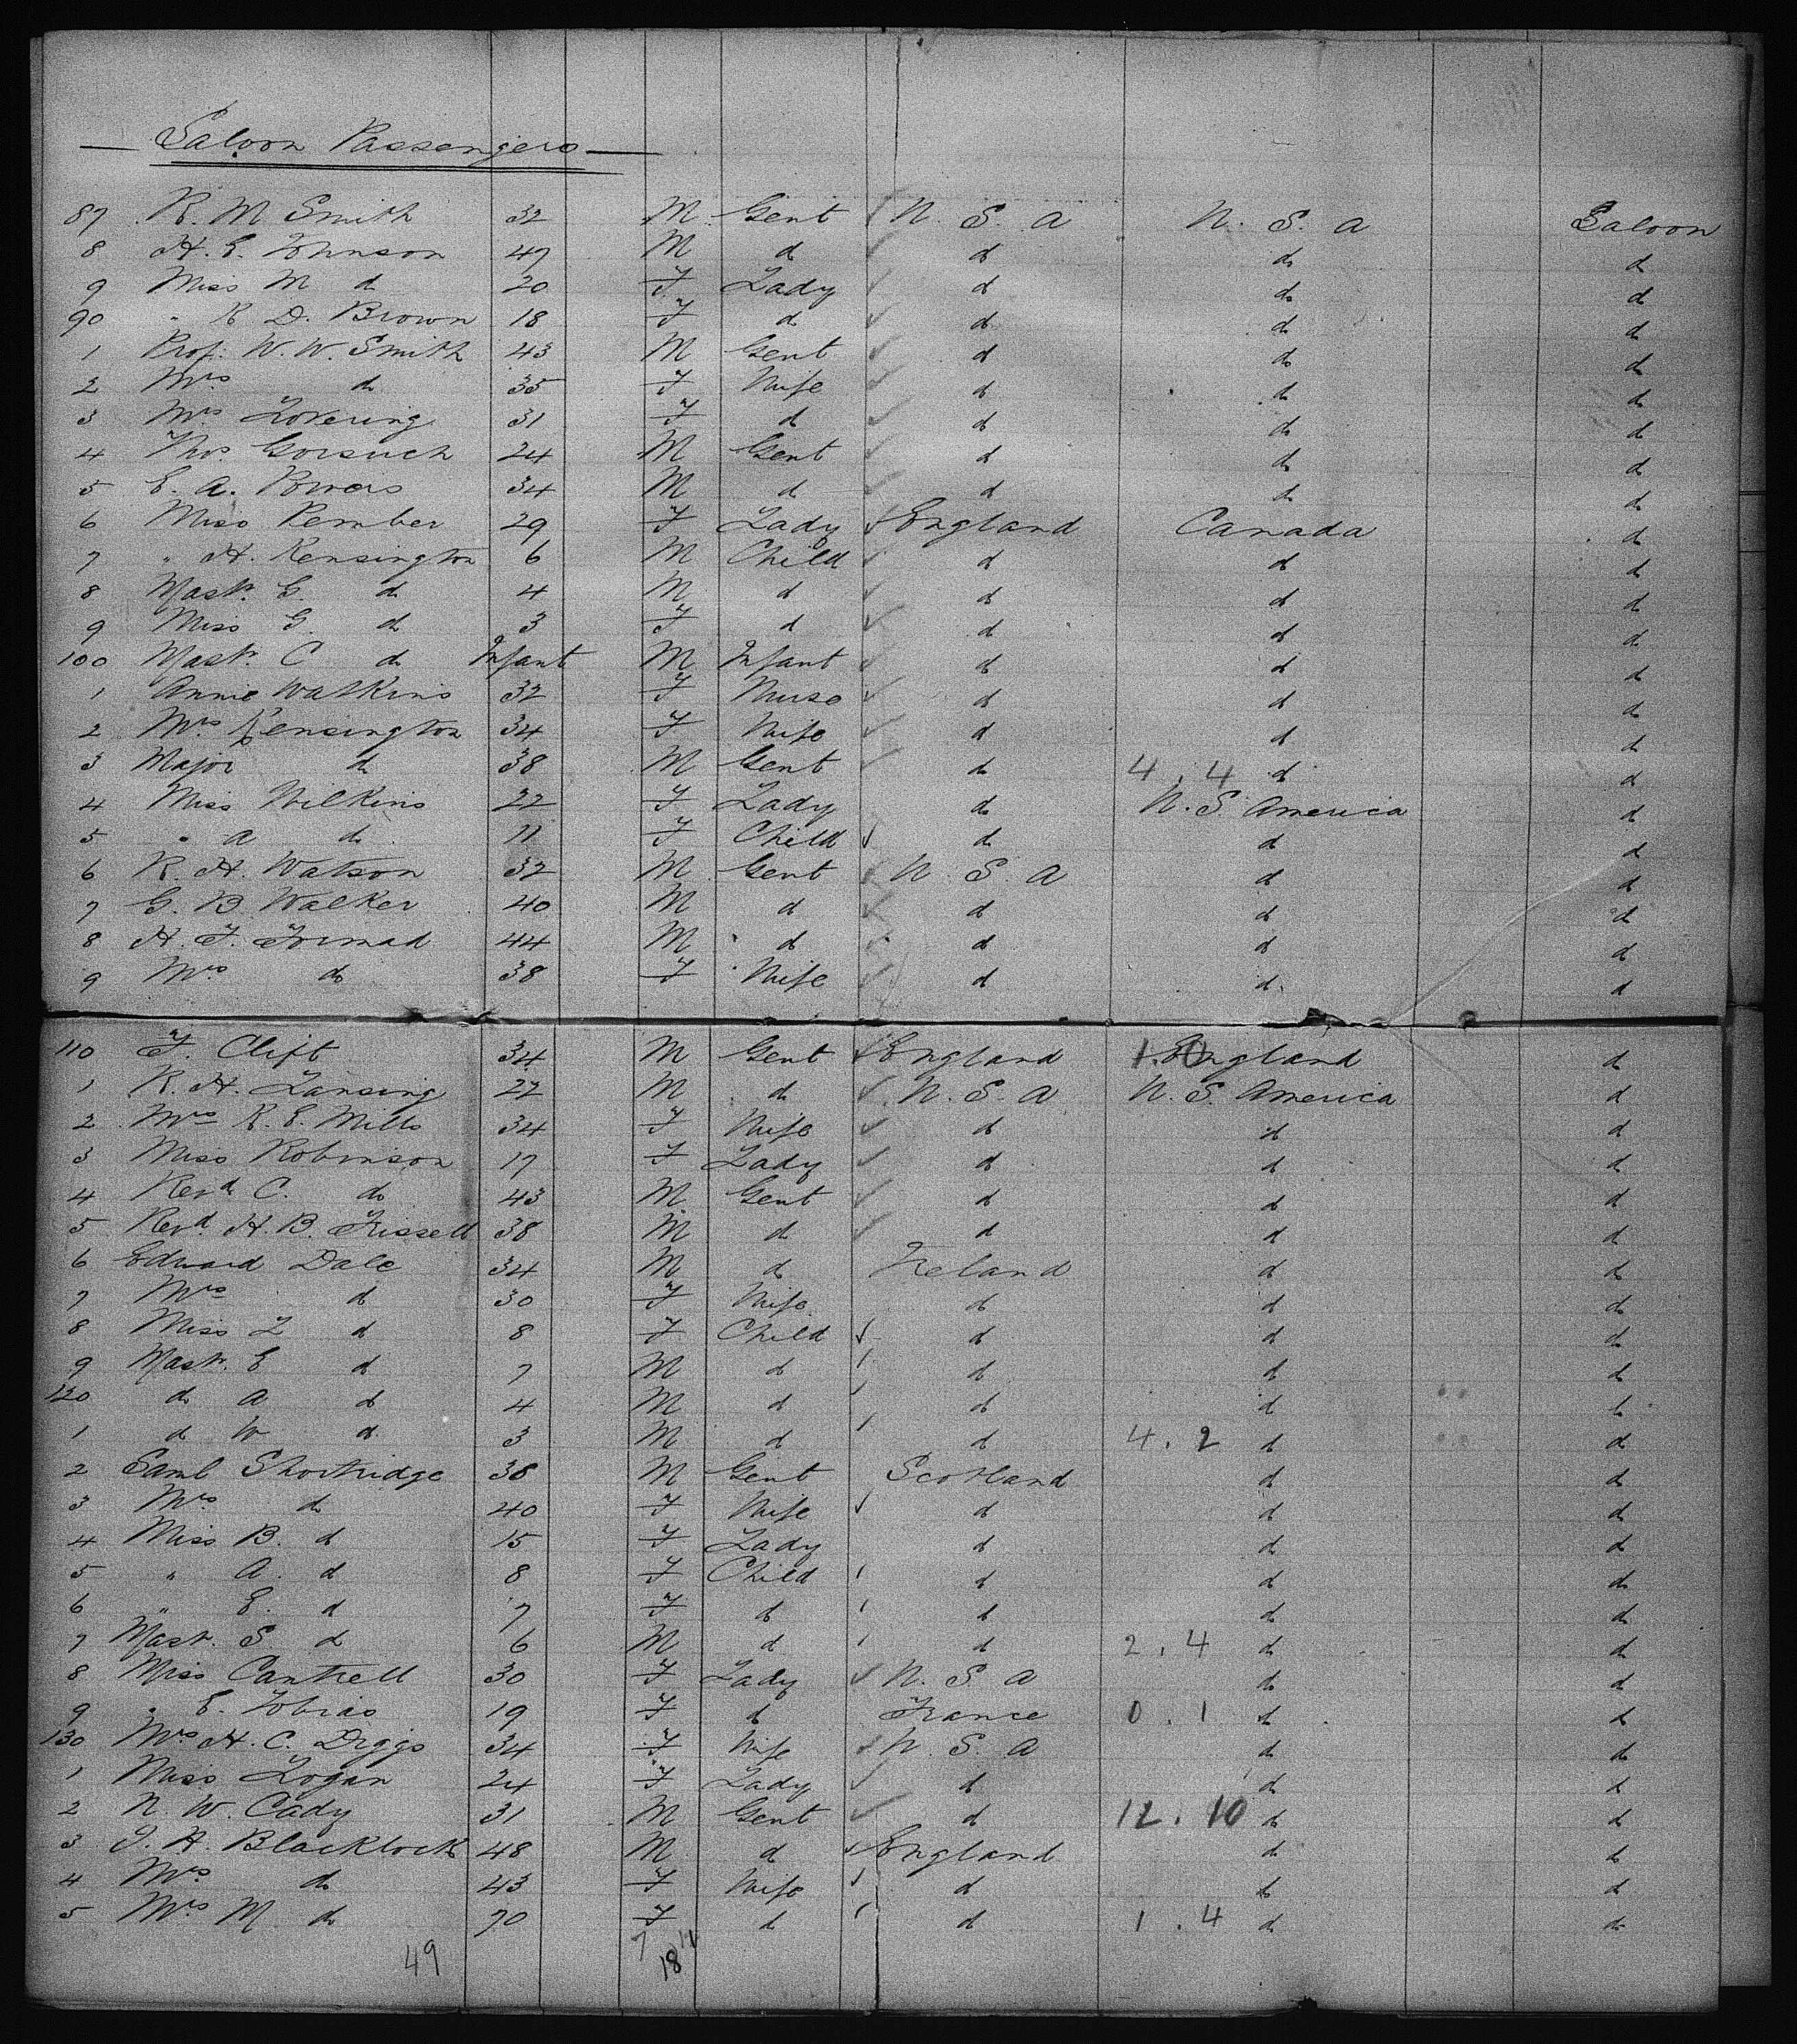 Saloon Passengers
87 R. M Smith 32 M Gent U. S. A U. S. A Saloon
8 H. E. Johnson 47 M do do do do
9 Miss M do 20 F Lady do do do
90 " R D. Brown 18 F do do do do
1 Prof. W. W. Smith 43 M Gent do do do
2 Mrs do 35 F Wife do do do
3 Mrs Lovering 31 F do do do do
4 Thos. Gorsuch 24 M Gent do do do
5 E. A. Powers 34 M do do do do
6 Miss Pember 29 F Lady England Canada do
7 " H. Kensington 6 M Child do do do
8 Mastr. E. do 4 M do do do do
9 Miss G. do 3 F do do do do
100 Mastr. C do Infant M Infant do do do
1 Annie Watkins 32 F Nurse do do do
2 Mrs Kensington 34 F Wife do do do
3 Major do 38 M Gent do 4 . 4 do do
4 Miss Wilkins 22 F Lady do U. S. America do
5 " A do 11 F Child do do do
6 R. H. Watson 32 M Gent U. S. A do do
7 G. B. Walker 40 M do do do do
8 H. F. Formad 44 M do do do do
9 Mrs do 38 F Wife do do do
110 F. Clift 34 M Gent England 1.0 England do
1 R. H. Lansing 22 M do U. S. A U. S. America do
2 Mrs R. E. Mills 34 F Wife do do do
3 Miss Robinson 17 F Lady do do do
4 Revd C. do 43 M Gent do do do
5 Revd H. B. Frissell 38 M do do do do
6 Edward Dale 34 M do Ireland do do
7 Mrs do 30 F Wife do do do
8 Miss L do 8 F Child do do do
9 Mastr. E do 7 M do do do do
120 do A do 4 M do do do do
1 do W do 3 M do do 4 . 2 do do
2 Saml Shortridge 38 M Gent Scotland do do
3 Mrs do 40 F Wife do do do
4 Miss B. do 15 F Lady do do do
5 " A. do 8 F Child do do do
6 " E. do 7 F do do do do
7 Mastr. S do 6 M do do 2 . 4 do do
8 Miss Cantrell 30 F Lady U. S. A do do
9 " E. Tobias 19 F do France 0 . 1 do do
130 Mrs H. C. Diggs 34 F Wife U. S. A do do
1 Miss Logan 24 F Lady do do do
2 N. W. Cady 31 M Gent do 12 . 10 do do
3 J. H. Blacklock 48 M do England do do
4 Mrs do 43 F Wife do do do
5 Mrs M. do 70 F do do 1 . 4 do do
49 7 18